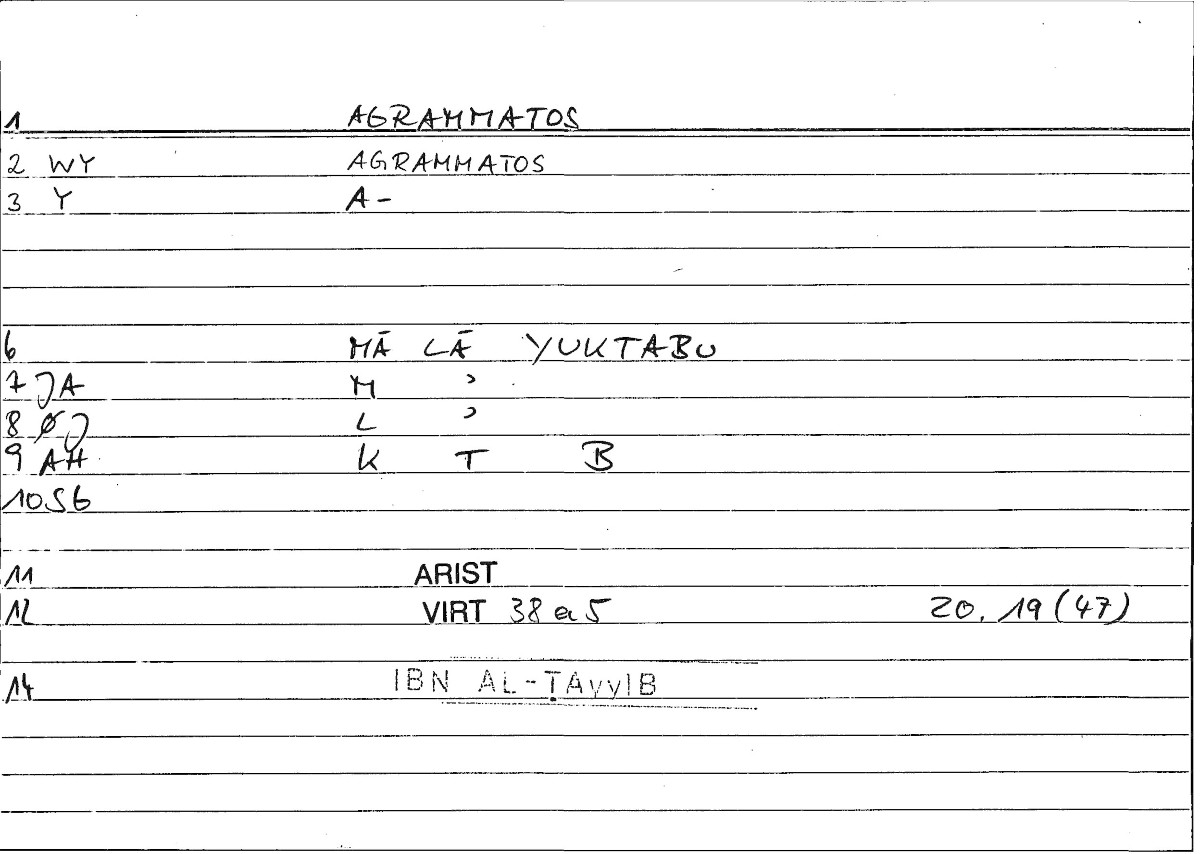 1 AGRAMMATOS
2 WY AGRAMMATOS
3 Y A-
6 MĀ LĀ YUKTABU
7 JA M ʾ
8 ØJ L ʾ
9 AH K T B
10 S6
11 ARIST
12 VIRT 38 a 5 20, 19 (47)
14 IBN AL-ṬAyyIB